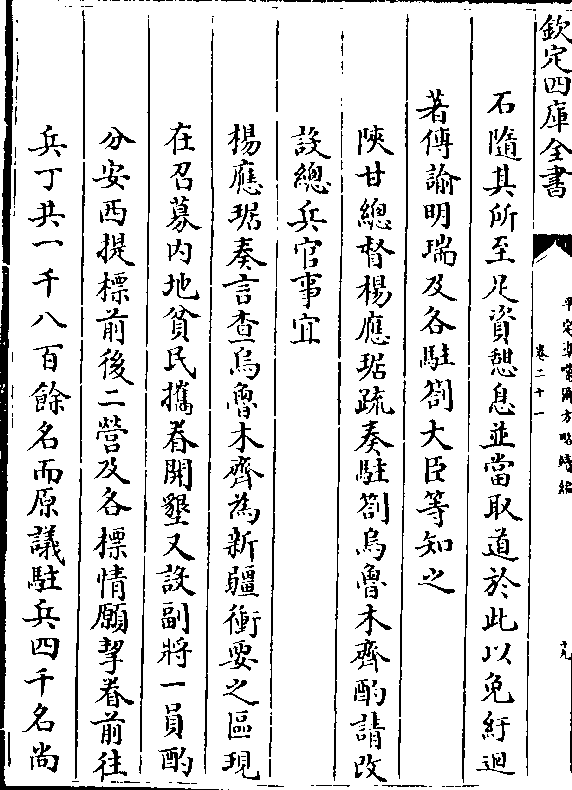 欽定四庫全書
平定準噶爾方略續編
卷二十一
九
石隨其所至足資憩息並當取道於此以免紆迴
著傳諭明瑞及各駐劄大臣等知之
陜甘總督楊應琚疏奏駐劄烏魯木齊酌請改
設總兵官事宜
楊應琚奏言查烏魯木齊為新疆衝要之區現
在召募内地貧民攜眷開墾又設副將一員酌
分安西提標前後二營及各標情願挈眷前往
兵丁共一千八百餘名而原議駐兵四千名尚